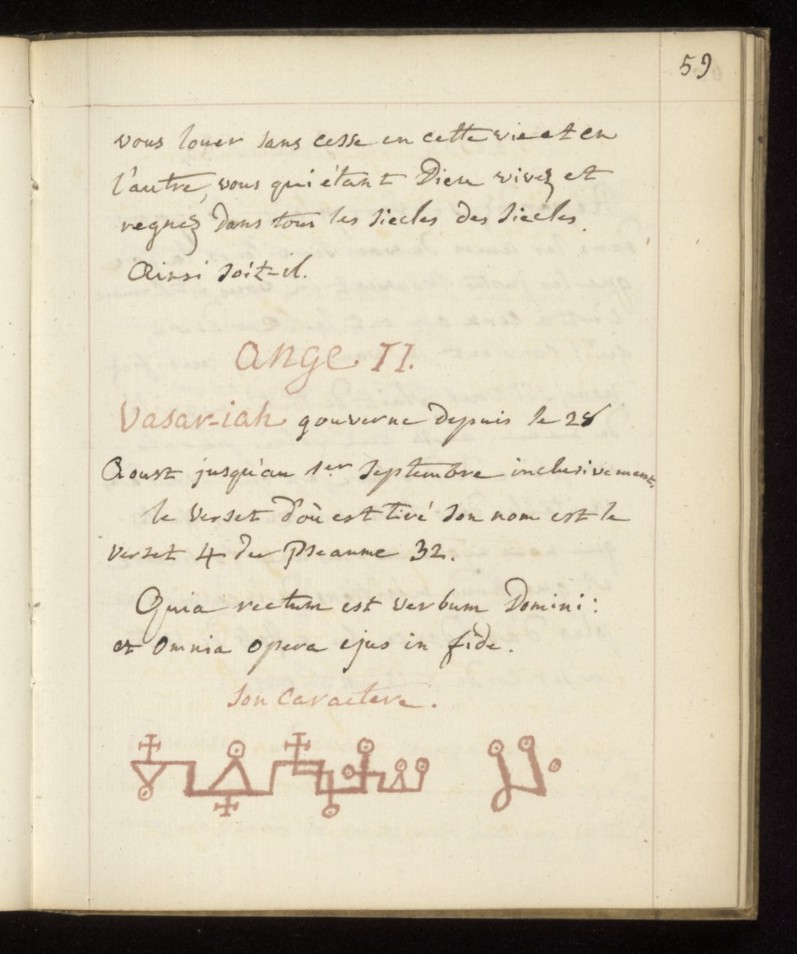 59
vous louer sans cesse en cette vie et en
l'autre, vous qui étant Dieu vivez et
regnez dans tous les siecles des siecles.
Ainsi soit-il.
Ange II.
Vasar-iah gouverne depuis le 28
Aoust jusqu'au 1er Septembre inclusivement.
le verset d'où est tiré son nom est le
verset 4 du Pseaume 32.
Quia rectum est verbum Domini:
et omnia opera ejus in fide.
Son caractere.